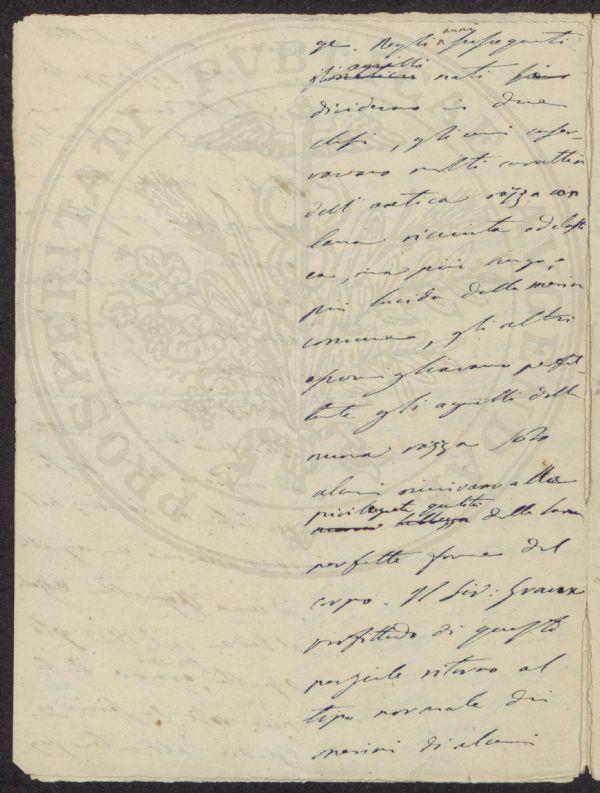 ge. Negli anni susseguenti
gli agnelli nati si
dividevano in due
classi, gli uni conser-
vavano molti caratteri
dell'antica razza con
lana riccia ed elasti-
ca, ma più lunga, e
più lucida della merina
comune, gli altri
assomigliavano perfet-
tente gli agnelli della
nuova razza solo
alcuni riunivano alla
qualità della lana
perfette forme del
corpo. Il Sig: Graux
profittando di questo
parziale ritorno al
tipo normale dei
merini di alcuni
PROSPERITATI PUBLICAE AUGENDAE